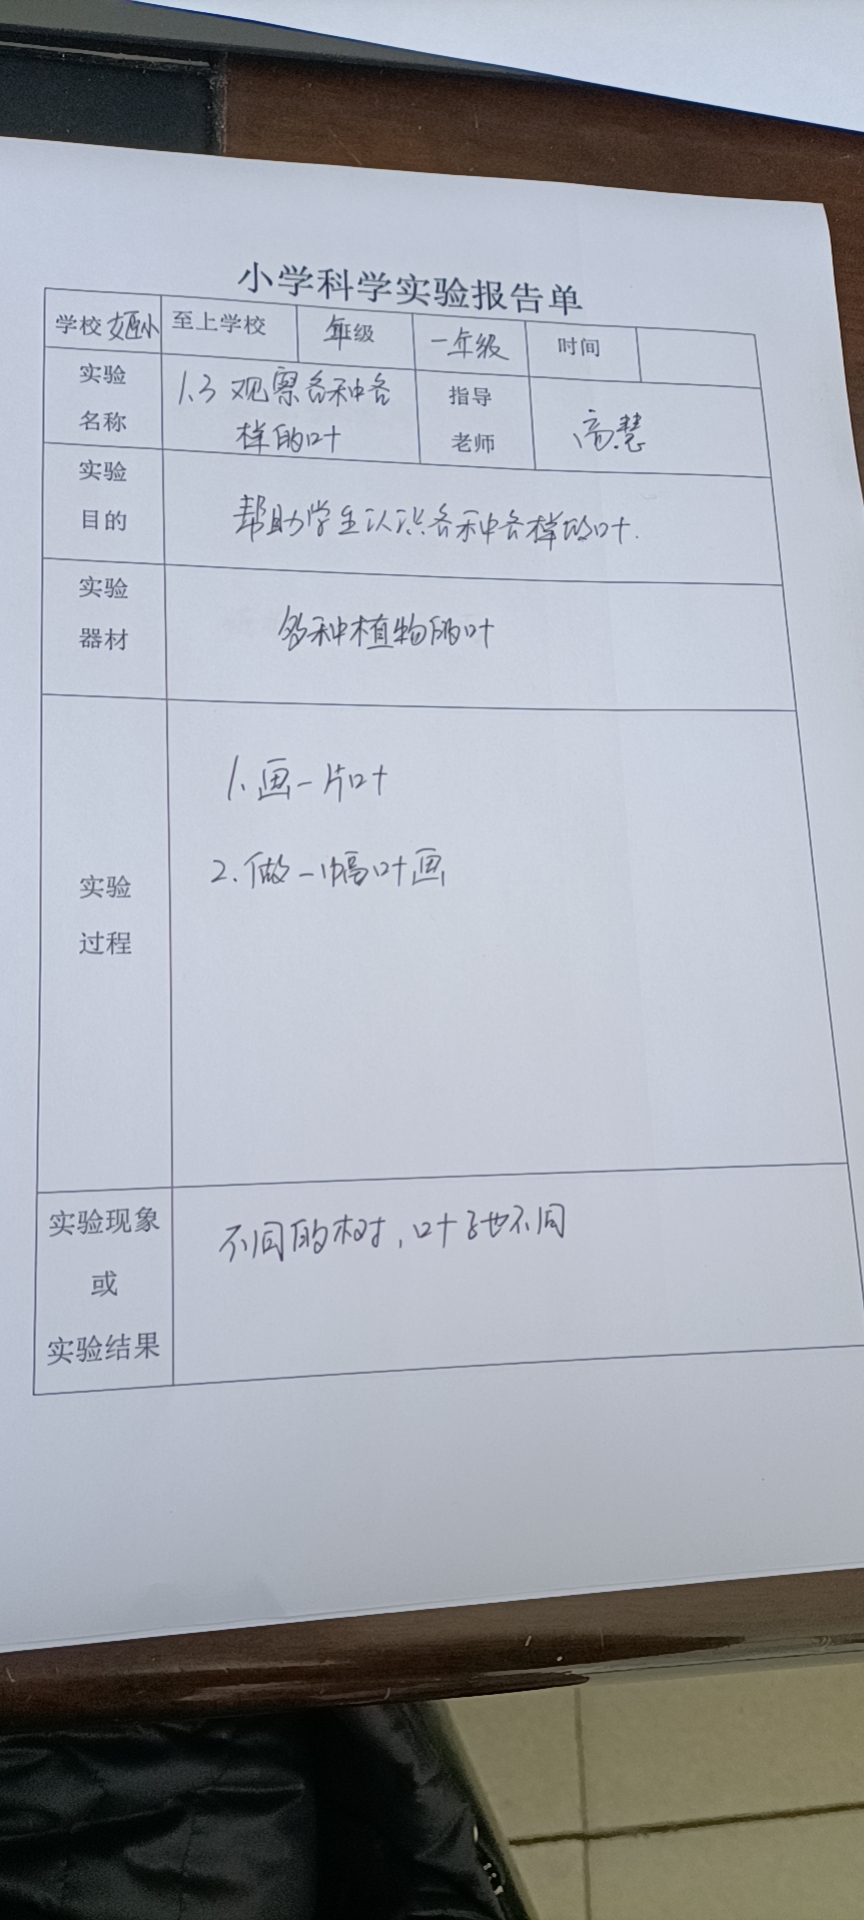 小学科学实验报告单
学校 至上学校 年级 一年级 时间
实验名称 1.3 观察各种各样的叶 指导老师 高慧
实验目的 帮助学生认识各种各样的叶.
实验器材 多种植物的叶
实验过程
1.画一片叶
2.做一幅叶画
实验现象
或
实验结果
不同的树,叶子也不同